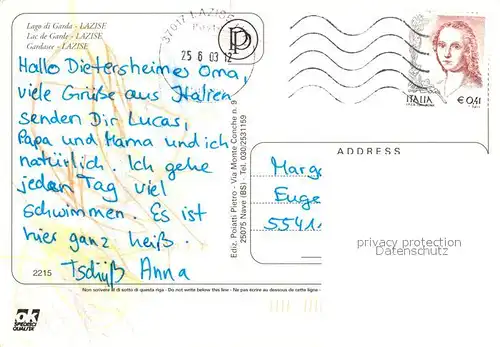 Lago di Garda - LAZISE
Lac de Garde - LAZISE
Gardasee - LAZISE
37017 LAZISE
25 6 03 12
PP
ITALIA
€ 0,41
Hallo Dietersheimer Oma,
viele Grüße aus Italien
senden Dir Lucas,
Papa und Mama und ich
natürlich. Ich gehe
jeden Tag viel
schwimmen. Es ist
hier ganz heiß.
Tschüß Anna
2215
Ediz. Poiatti Pietro - Via Monte Conche n. 9
25075 Nave (BS) - Tel. 030/2531159
ADDRESS
Marg
Euge
5541
privacy protection
Datenschutz
Non scrivere al di sotto di questa riga - Do not write below this line - Ne pas écrire au dessous de cette ligne -
ok
SPEDISCI
QUALITA'